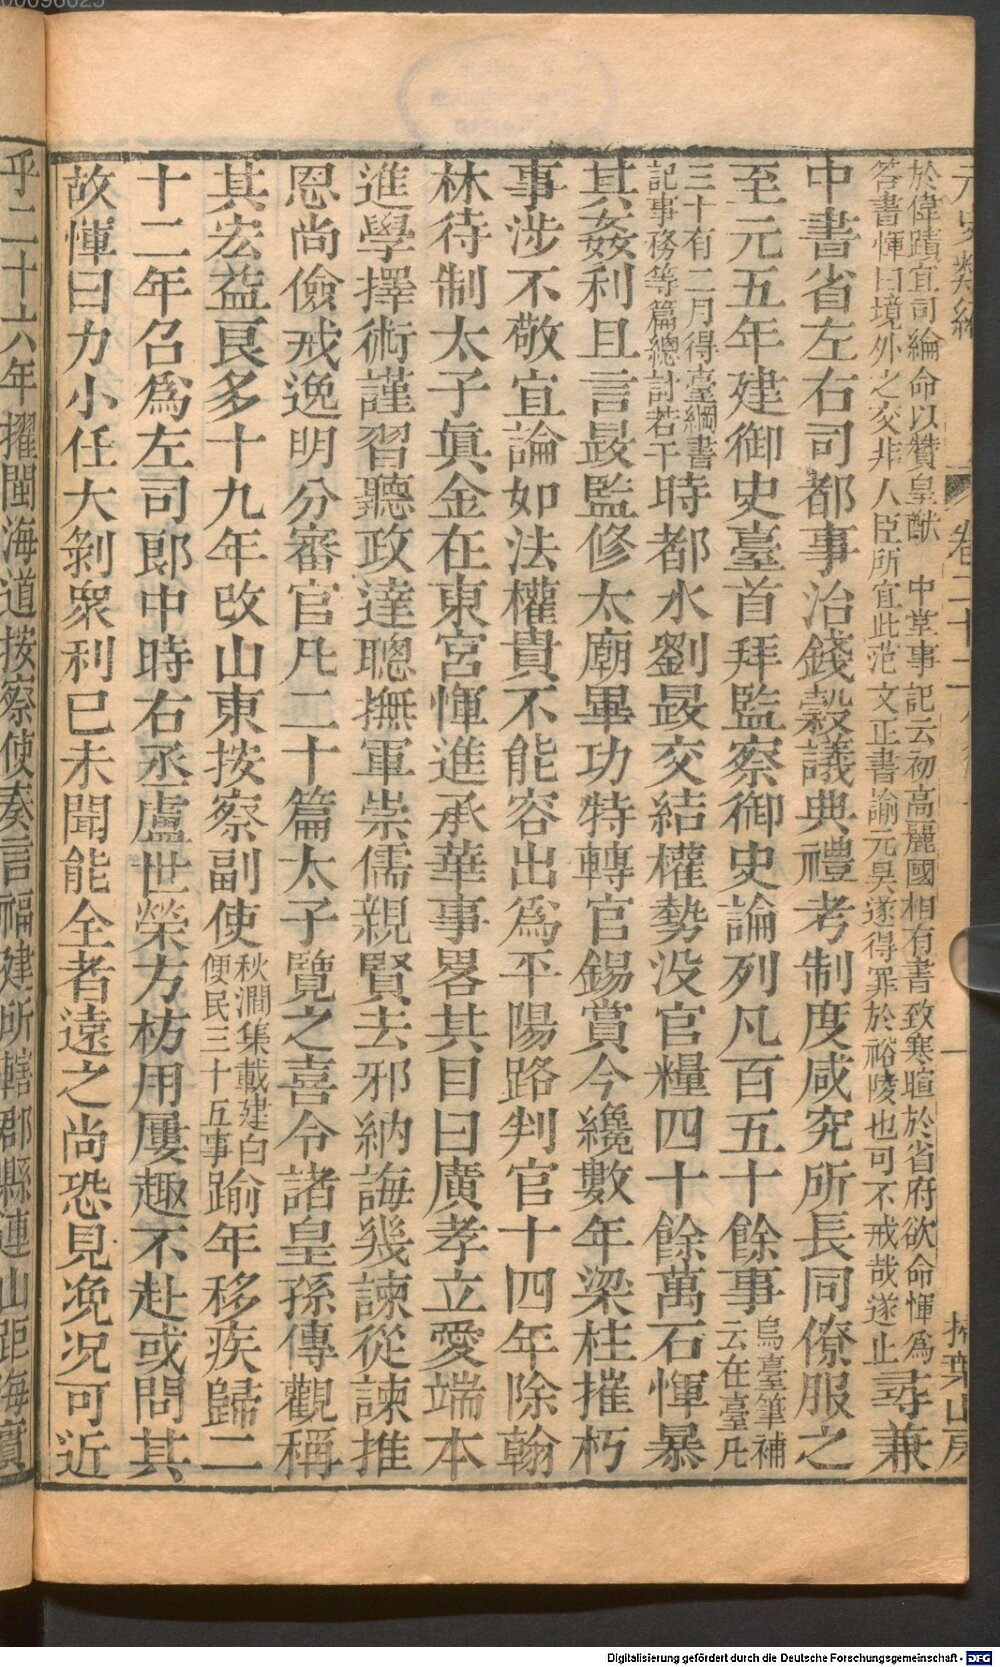 元史類編
卷二十二
掃葉山房
於偉蹟宜司綸命以贊皇猷　中堂事記云初高麗國相有書致寒暄於省府欲命惲爲
答書惲曰境外之交非人臣所宜此范文正書諭元昊遂得罪於裕陵也可不戒哉遂止尋兼
中書省左右司都事治錢穀議典禮考制度咸究所長同僚服之
至元五年建御史臺首拜監察御史論列凡百五十餘事烏臺筆補云在臺凡
三十有二月得臺綱書記事務等篇總計若干時都水劉晸交結權勢没官糧四十餘萬石惲暴
其姦利且言晸監修太廟畢功特轉官錫賞今纔數年梁柱摧朽
事涉不敬宜論如法權貴不能容出爲平陽路判官十四年除翰
林待制太子眞金在東宮惲進承華事畧其目曰廣孝立愛端本
進學擇術謹習聽政達聰撫軍崇儒親賢去邪納誨幾諫從諫推
恩尚儉戒逸明分審官凡二十篇太子覽之喜令諸皇孫傳觀稱
其宏益良多十九年改山東按察副使秋澗集載建白便民三十五事踰年移疾歸二
十二年召爲左司郎中時右丞盧世榮方枋用屢趣不赴或問其
故惲曰力小任大剝衆利已未聞能全者遠之尚恐見浼况可近
乎二十六年擢閩海道按察使奏言福建所轄郡縣連山距海實
Digitalisierung gefördert durch die Deutsche Forschungsgemeinschaft - DFG